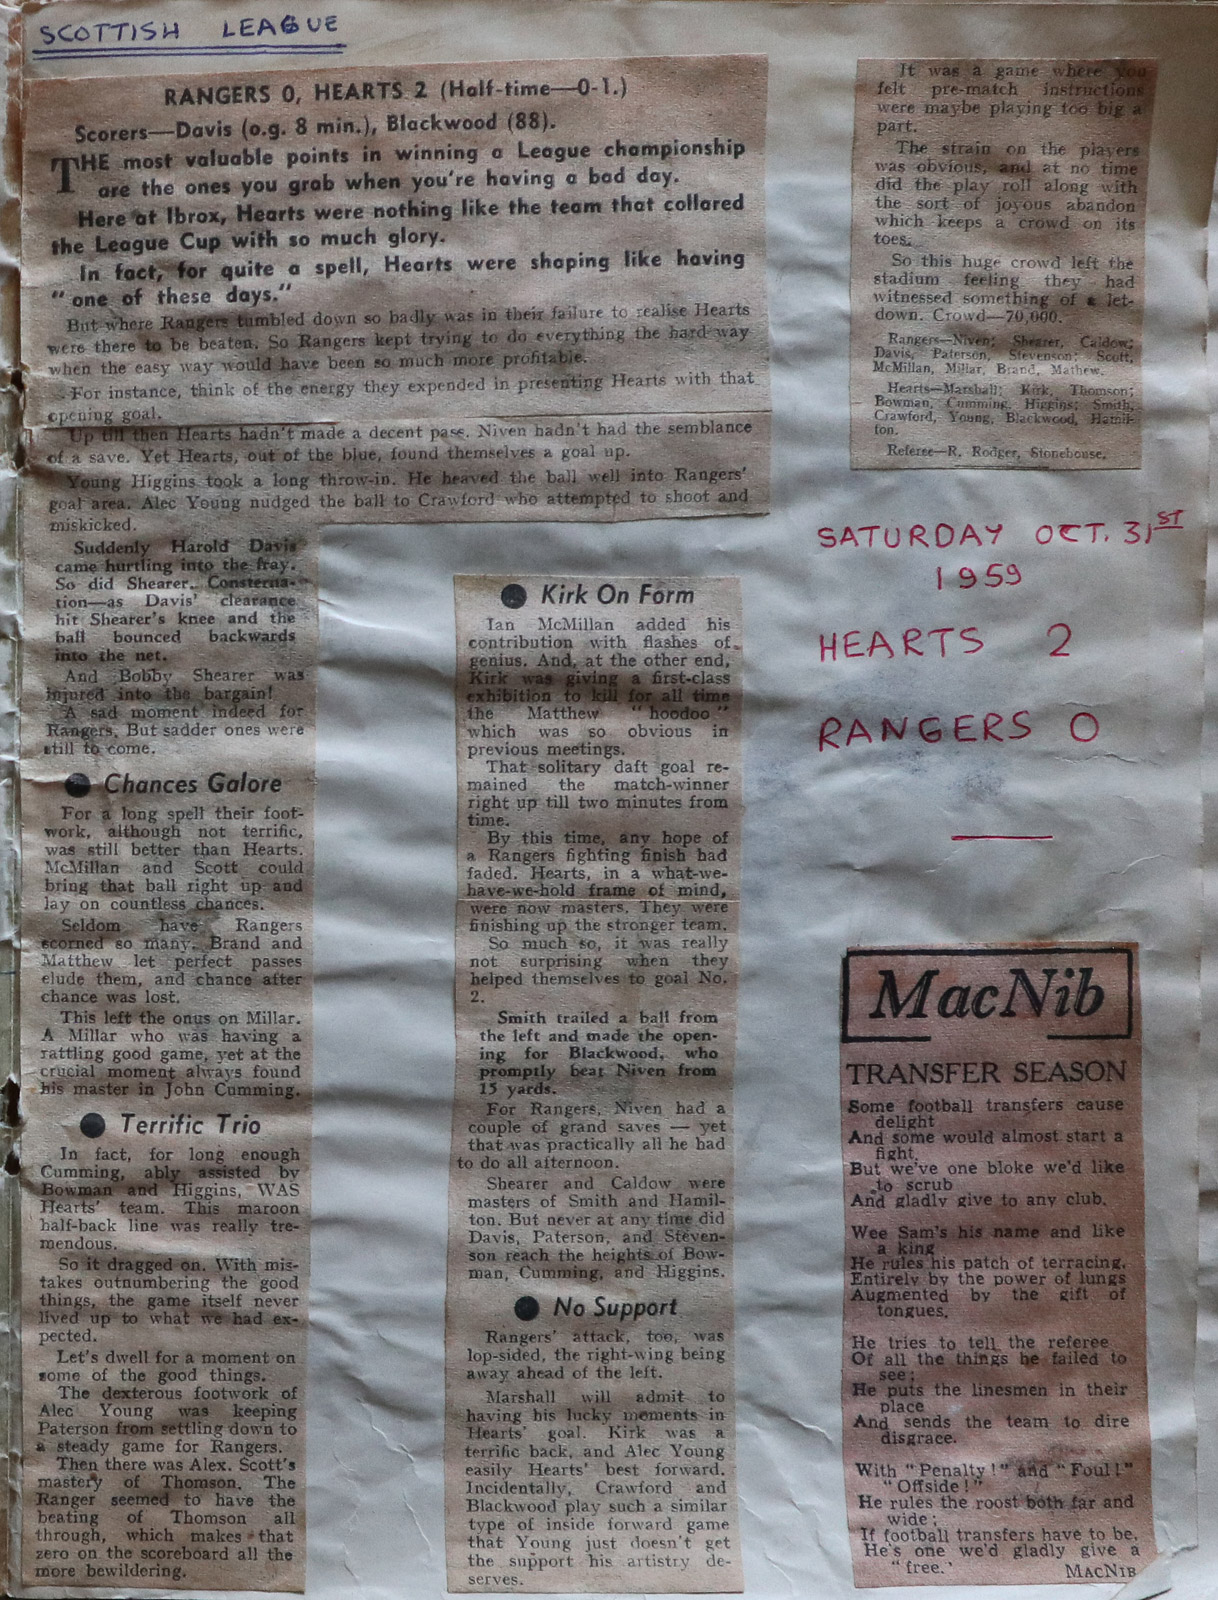 SCOTTISH LEAGUE
RANGERS 0, HEARTS 2 (Half-time—0-1.)
Scorers—Davis (o.g. 8 min.), Blackwood (88).
THE most valuable points in winning a League championship
are the ones you grab when you're having a bad day.
Here at Ibrox, Hearts were nothing like the team that collared
the League Cup with so much glory.
In fact, for quite a spell, Hearts were shaping like having
"one of these days."
But where Rangers tumbled down so badly was in their failure to realise Hearts
were there to be beaten. So Rangers kept trying to do everything the hard way
when the easy way would have been so much more profitable.
For instance, think of the energy they expended in presenting Hearts with that
opening goal.
Up till then Hearts hadn't made a decent pass. Niven hadn't had the semblance
of a save. Yet Hearts, out of the blue, found themselves a goal up.
Young Higgins took a long throw-in. He heaved the ball well into Rangers'
goal area. Alec Young nudged the ball to Crawford who attempted to shoot and
miskicked.
Suddenly Harold Davis
came hurtling into the fray.
So did Shearer. Consterna-
tion—as Davis' clearance
hit Shearer's knee and the
ball bounced backwards
into the net.
And Bobby Shearer was
injured into the bargain!
A sad moment indeed for
Rangers. But sadder ones were
still to come.
● Chances Galore
For a long spell their foot-
work, although not terrific,
was still better than Hearts.
McMillan and Scott could
bring that ball right up and
lay on countless chances.
Seldom have Rangers
scorned so many. Brand and
Matthew let perfect passes
elude them, and chance after
chance was lost.
This left the onus on Millar.
A Millar who was having a
rattling good game, yet at the
crucial moment always found
his master in John Cumming.
● Terrific Trio
In fact, for long enough
Cumming, ably assisted by
Bowman and Higgins, WAS
Hearts' team. This maroon
half-back line was really tre-
mendous.
So it dragged on. With mis-
takes outnumbering the good
things, the game itself never
lived up to what we had ex-
pected.
Let's dwell for a moment on
some of the good things.
The dexterous footwork of
Alec Young was keeping
Paterson from settling down to
a steady game for Rangers.
Then there was Alex. Scott's
mastery of Thomson. The
Ranger seemed to have the
beating of Thomson all
through, which makes that
zero on the scoreboard all the
more bewildering.
● Kirk On Form
Ian McMillan added his
contribution with flashes of
genius. And, at the other end,
Kirk was giving a first-class
exhibition to kill for all time
the Matthew "hoodoo"
which was so obvious in
previous meetings.
That solitary daft goal re-
mained the match-winner
right up till two minutes from
time.
By this time, any hope of
a Rangers fighting finish had
faded. Hearts, in a what-we-
have-we-hold frame of mind,
were now masters. They were
finishing up the stronger team.
So much so, it was really
not surprising when they
helped themselves to goal No.
2.
Smith trailed a ball from
the left and made the open-
ing for Blackwood, who
promptly beat Niven from
15 yards.
For Rangers, Niven had a
couple of grand saves — yet
that was practically all he had
to do all afternoon.
Shearer and Caldow were
masters of Smith and Hamil-
ton. But never at any time did
Davis, Paterson, and Steven-
son reach the heights of Bow-
man, Cumming, and Higgins.
● No Support
Rangers' attack, too, was
lop-sided, the right-wing being
away ahead of the left.
Marshall will admit to
having his lucky moments in
Hearts' goal. Kirk was a
terrific back, and Alec Young
easily Hearts' best forward.
Incidentally, Crawford and
Blackwood play such a similar
type of inside forward game
that Young just doesn't get
the support his artistry de-
serves.
It was a game where you
felt pre-match instructions
were maybe playing too big a
part.
The strain on the players
was obvious, and at no time
did the play roll along with
the sort of joyous abandon
which keeps a crowd on its
toes.
So this huge crowd left the
stadium feeling they had
witnessed something of a let-
down. Crowd—70,000.
Rangers—Niven; Shearer, Caldow;
Davis, Paterson, Stevenson; Scott,
McMillan, Millar, Brand, Mathew.
Hearts—Marshall; Kirk, Thomson;
Bowman, Cumming, Higgins; Smith,
Crawford, Young, Blackwood, Hamil-
ton.
Referee—R. Rodger, Stonehouse.
SATURDAY OCT. 31ST
1959
HEARTS 2
RANGERS 0
MacNib
TRANSFER SEASON
Some football transfers cause
delight
And some would almost start a
fight,
But we've one bloke we'd like
to scrub
And gladly give to any club.
Wee Sam's his name and like
a king
He rules his patch of terracing,
Entirely by the power of lungs
Augmented by the gift of
tongues.
He tries to tell the referee
Of all the things he failed to
see;
He puts the linesmen in their
place
And sends the team to dire
disgrace.
With "Penalty!" and "Foul!"
"Offside!"
He rules the roost both far and
wide;
If football transfers have to be,
He's one we'd gladly give a
"free."
MACNIB